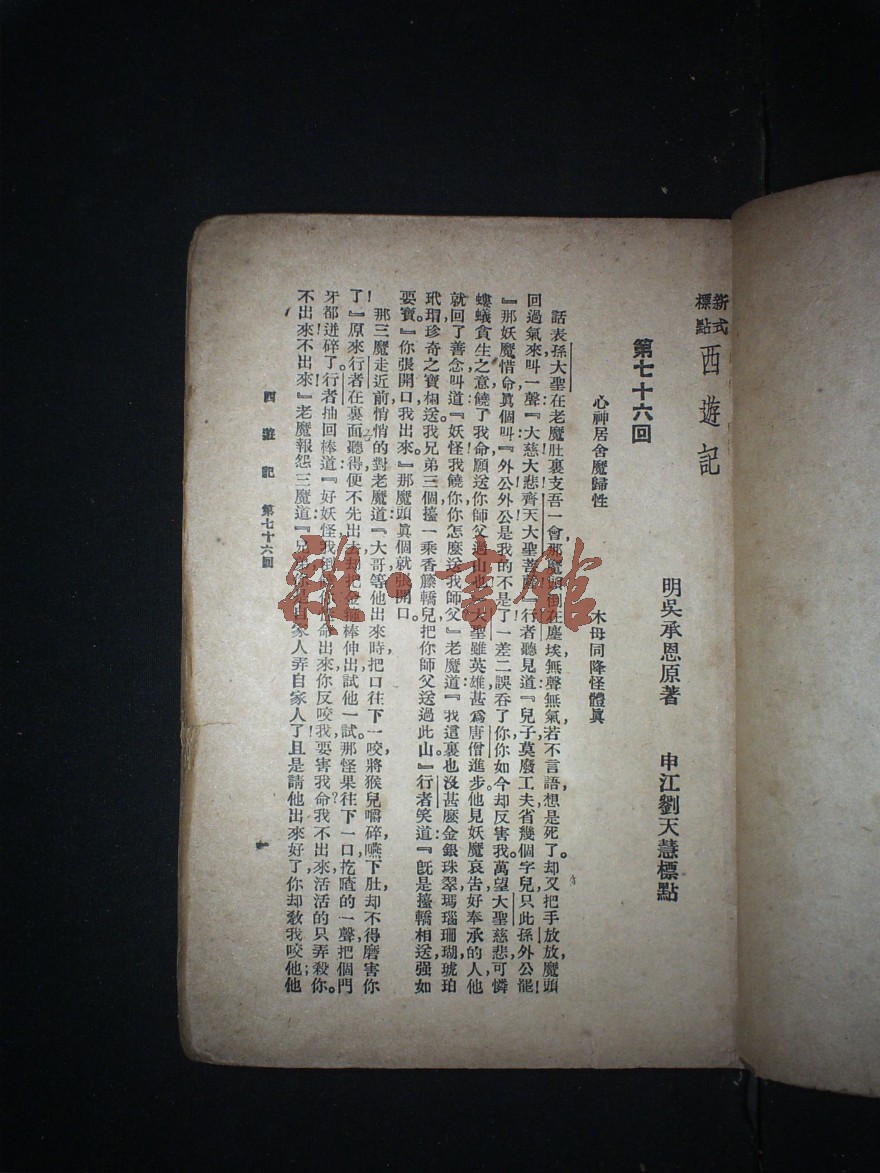 新式標點 西遊記
明吳承恩原著 申江劉天慧標點
第七十六回
心神居舍魔歸性 木母同降怪體眞
話表孫大聖在老魔肚裏支吾一會,那魔頭倒在塵埃,無聲無氣,若不言語,想是死了。却又把手放放,魔頭
回過氣來,叫一聲:『大慈大悲齊天大聖菩薩!』行者聽見道:『兒子,莫廢工夫,省幾個字兒,只此孫外公罷!』
『那妖魔惜命,眞個叫:『外公外公!是我的不是了!一差二誤吞了你,你如今却反害我。萬望大聖慈悲,可憐
螻蟻貪生之意,饒了我命,願送你師父過山也。』大聖雖英雄,甚爲唐僧進步。他見妖魔哀告,好奉承的人,他
就回了善念,叫道:『妖怪,我饒你,你怎麼送我師父?』老魔道:『我這裏也沒甚麼金銀珠翠,瑪瑙珊瑚,琥珀
玳瑁珍奇之寶相送,我兄弟三個擡一乘香藤轎兒,把你師父送過此山。』行者笑道:『旣是擡轎相送,强如
要寶。』你張開口,我出來。』那魔頭眞個就張開口。
那三魔走近前,悄悄的對老魔道:『大哥,等他出來時,把口往下一咬,將猴兒嚼碎,嚥下肚,却不得磨害你
了!』原來行者在裏面聽得,便不先出去,却把金箍棒伸出,試他一試。那怪果往下一口,扢喳的一聲,把個門
牙都迸碎了。行者抽回棒道:『好妖怪!我 命出來,你反咬我,要害我命!我不出來,活活的只弄殺你。
不出來!不出來!』老魔報怨三魔道:『兄弟,你是自家人弄自家人了!且是請他出來好了,你却敎我咬他;他
西遊記 第七十六回
雜·書館